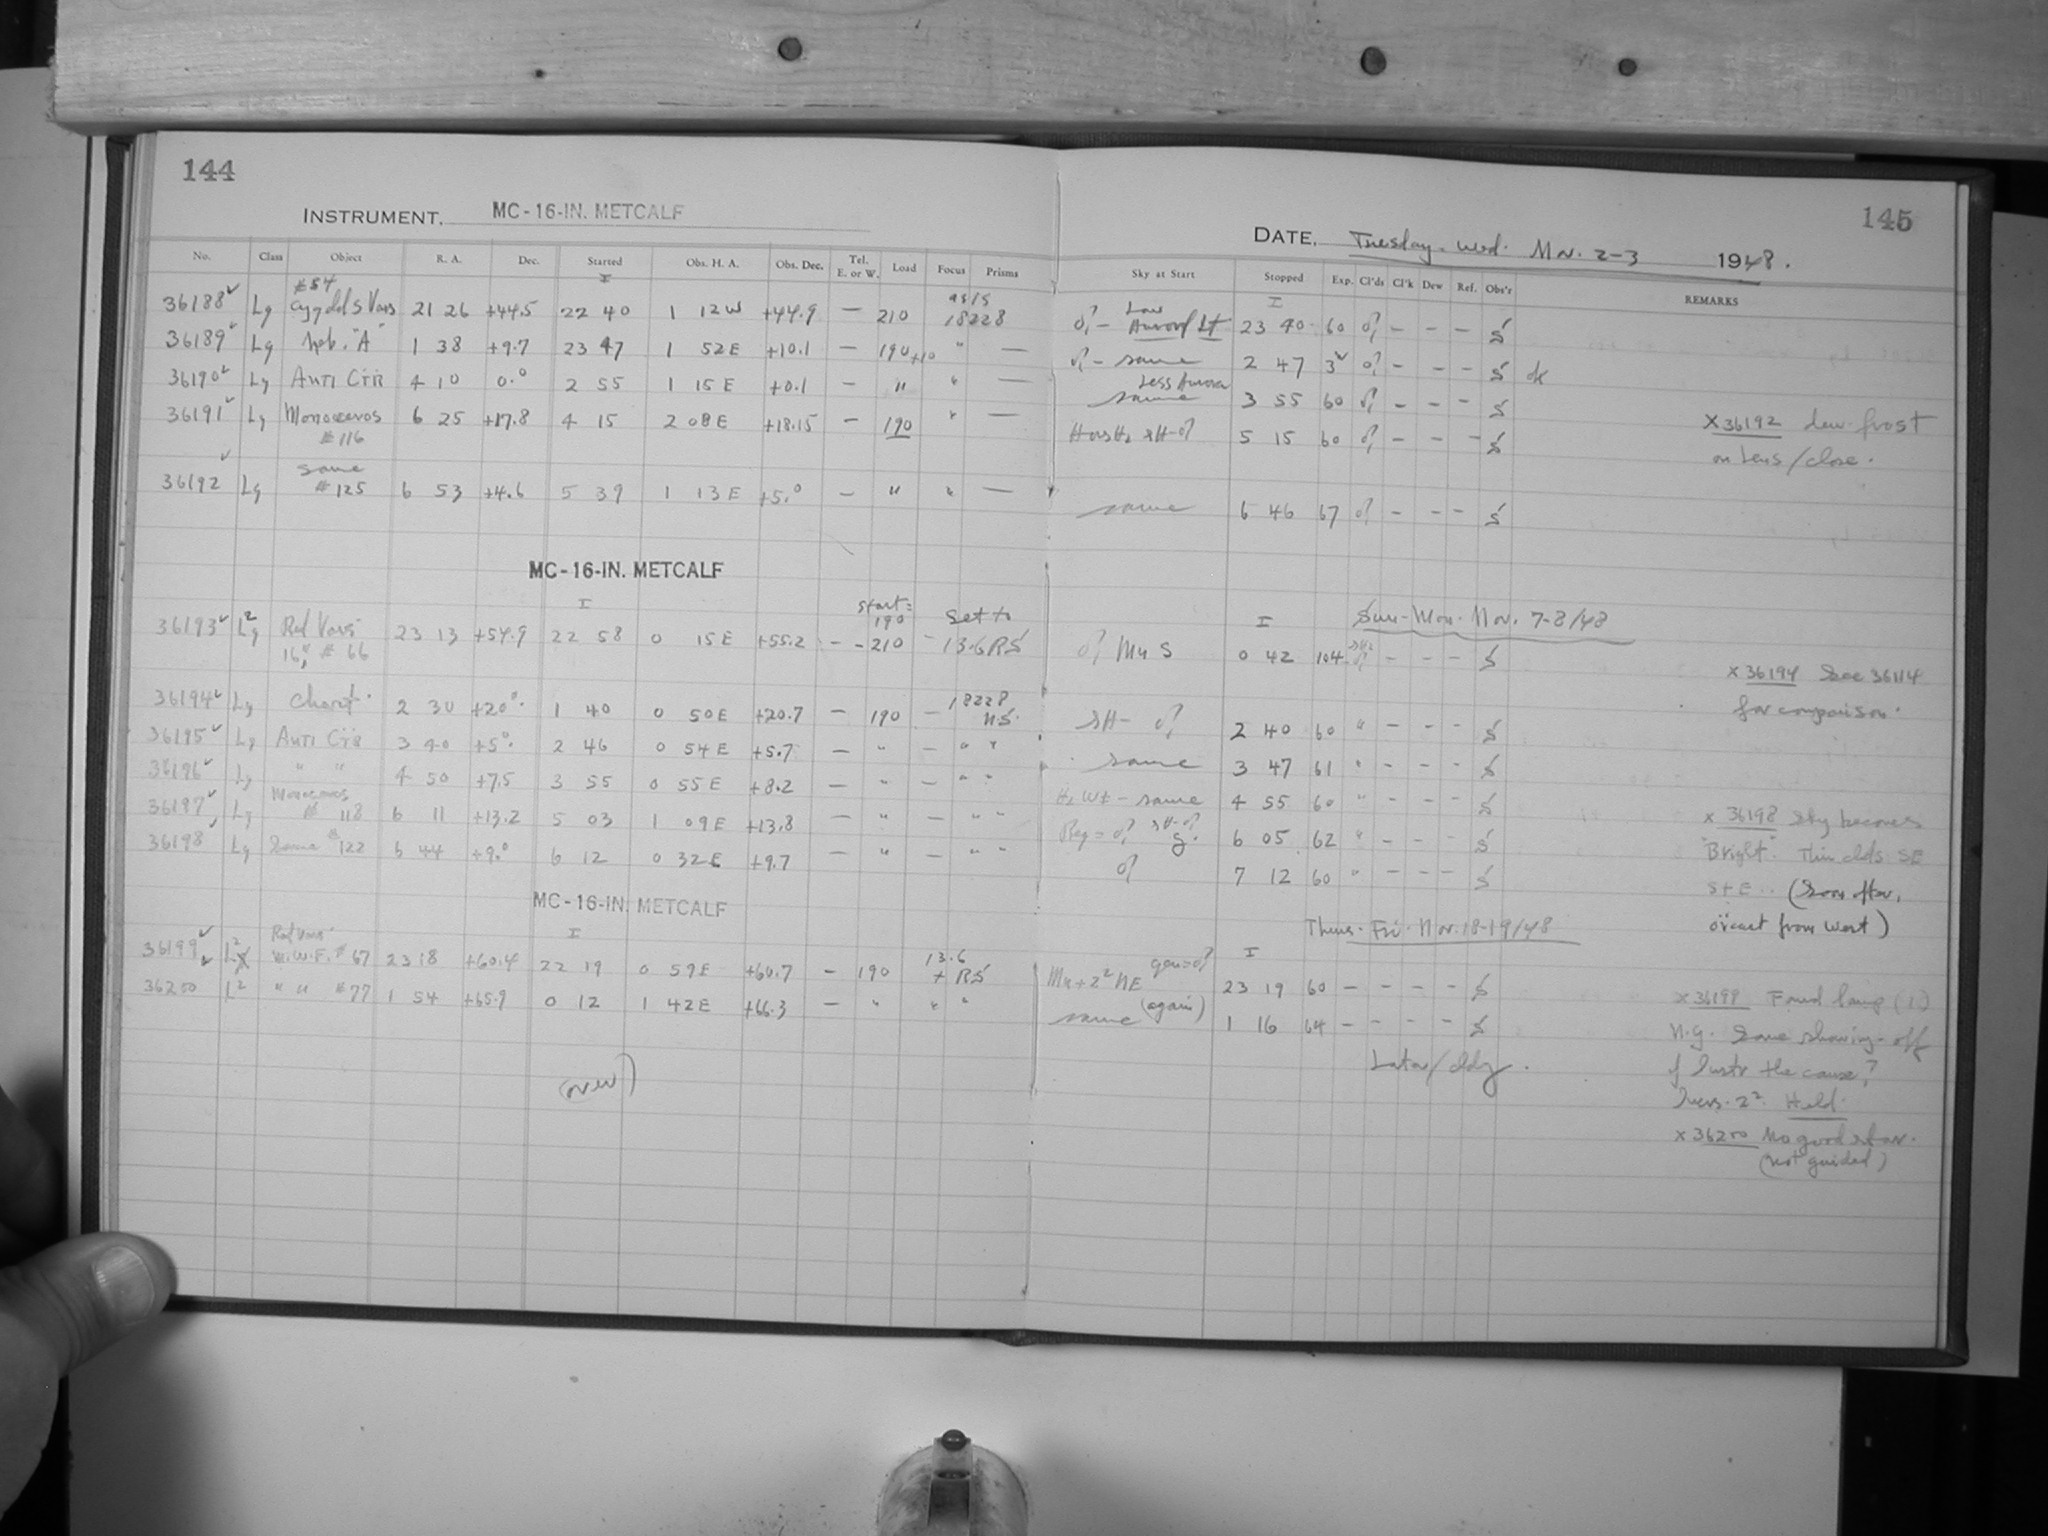 144
INSTRUMENT. MC-16-IN. METCALF
No. Class Object R. A. Dec. Started Obs. H. A. Obs. Dec. Tel. E. or W. Load Focus Prisms
I
#54
36188 Lg Vars 21 26 +44.5 22 40 1 12W +44.9 — 210 18228
36189 Lg "A" 1 38 +9.7 23 47 1 52E +10.1 — 190 +10 " —
36190 Lg Anti Ctr 4 10 0.0 2 55 1 15E +0.1 — " " —
36191 Lg Monoceros 6 25 +17.8 4 15 2 08E +18.15 — 190 " —
#116
36192 Lg same #125 6 53 +4.6 5 39 1 13E +5.0 — " " —
MC-16-IN. METCALF
I
start = 190 Set to
36193 L2g Red Vars 23 13 +54.9 22 58 0 15E +55.2 - - 210 - 13.6 RS
16" #66
36194 Lg 2 30 +20° 1 40 0 50E +20.7 — 190 — 18228 NS.
36195 Lg Anti Ctr 3 40 +5° 2 46 0 54E +5.7 — " — " "
36196 Lg " " 4 50 +7.5 3 55 0 55E +8.2 — " — " "
36197 Lg Monoceros #118 6 11 +13.2 5 03 1 09E +13.8 — " — " "
36198 Lg Same #122 6 44 +9.0 6 12 0 32E +9.7 — " — " "
MC-16-IN. METCALF
I
Red Vars
36199 L2 W.W.F. #67 23 18 +60.4 22 19 0 59E +60.7 — 190 13.6 + RS
36200 L2 " " #77 1 54 +65.9 0 12 1 42E +66.3 — " " "
(new)
145
DATE. Tuesday-Wed. Nov. 2-3 1948.
Sky at Start Stopped Exp. Cl'ds Cl'k Dew Ref. Obs'r REMARKS
I
Low
23 40 60 - - -
same 2 47 - - - ok
Less Aurora
same 3 55 60 - - -
5 15 60 - - -
X36192 dew-frost
on Lens/close.
same 6 46 67 - - -
I Sun-Mon. Nov. 7-8/48
0 42 104 - - -
x 36194 See 36114
for comparison.
2 40 60 " - - -
same 3 47 61 " - - -
same 4 55 60 " - - -
6 05 62 " - - -
7 12 60 " - - -
x 36198 Sky becomes
"Bright". Thin clds SE
S+E.. (Soon after,
o'cast from West)
Thurs-Fri-Nov. 18-19/48
I
NE 23 19 60 - - - -
same (again) 1 16 64 - - - -
Later/cldy.
x36199 Found lamp (1)
N.G. Some showing-off
the cause?
Hold.
x 36200 No good star.
(not guided)